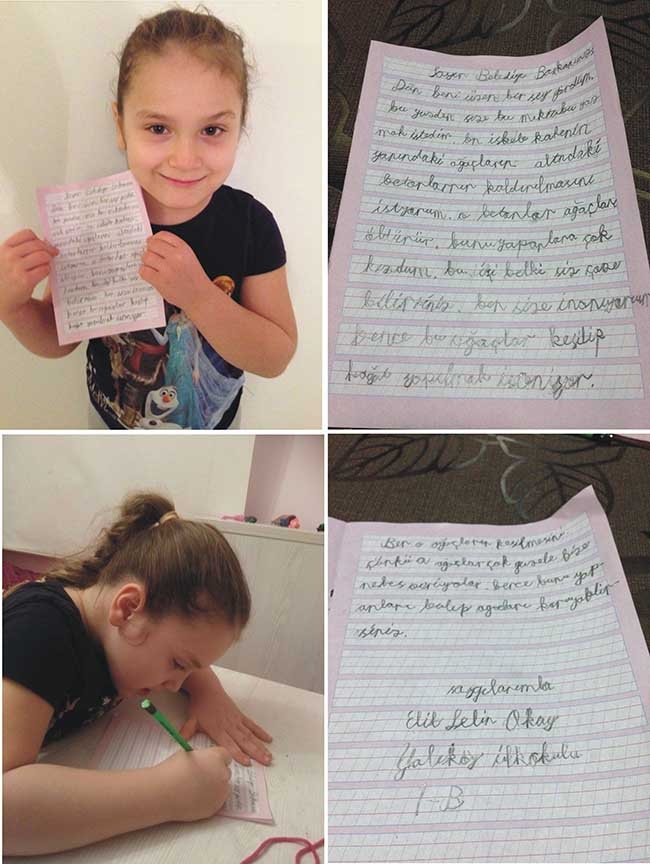 Sayın Belediye Başkanımız
Dün beni üzen bir şey gördüm.
bu yüzden size bu mektubu yaz
mak istedim. ben iskele kafenin
yanındaki ağaçların altındaki
betonların kaldırılmasını
istiyorum. o betonlar ağaçları
öldürür. bunu yapanlara çok
kızdım. bu işi belki siz çöze
bilirsiniz. ben size inanıyorum
bence bu ağaçlar kesilip
kağıt yapılmak isteniyor.
Ben o ağaçların kesilmesini
çünkü o ağaçlar çok güzel bize
nefes veriyolar. bence bunu yap
anları bulup ağaçları koruyabilir
siniz.
saygılarımla
Elif Selin Okay
Yalıköy ilkokulu
1-B